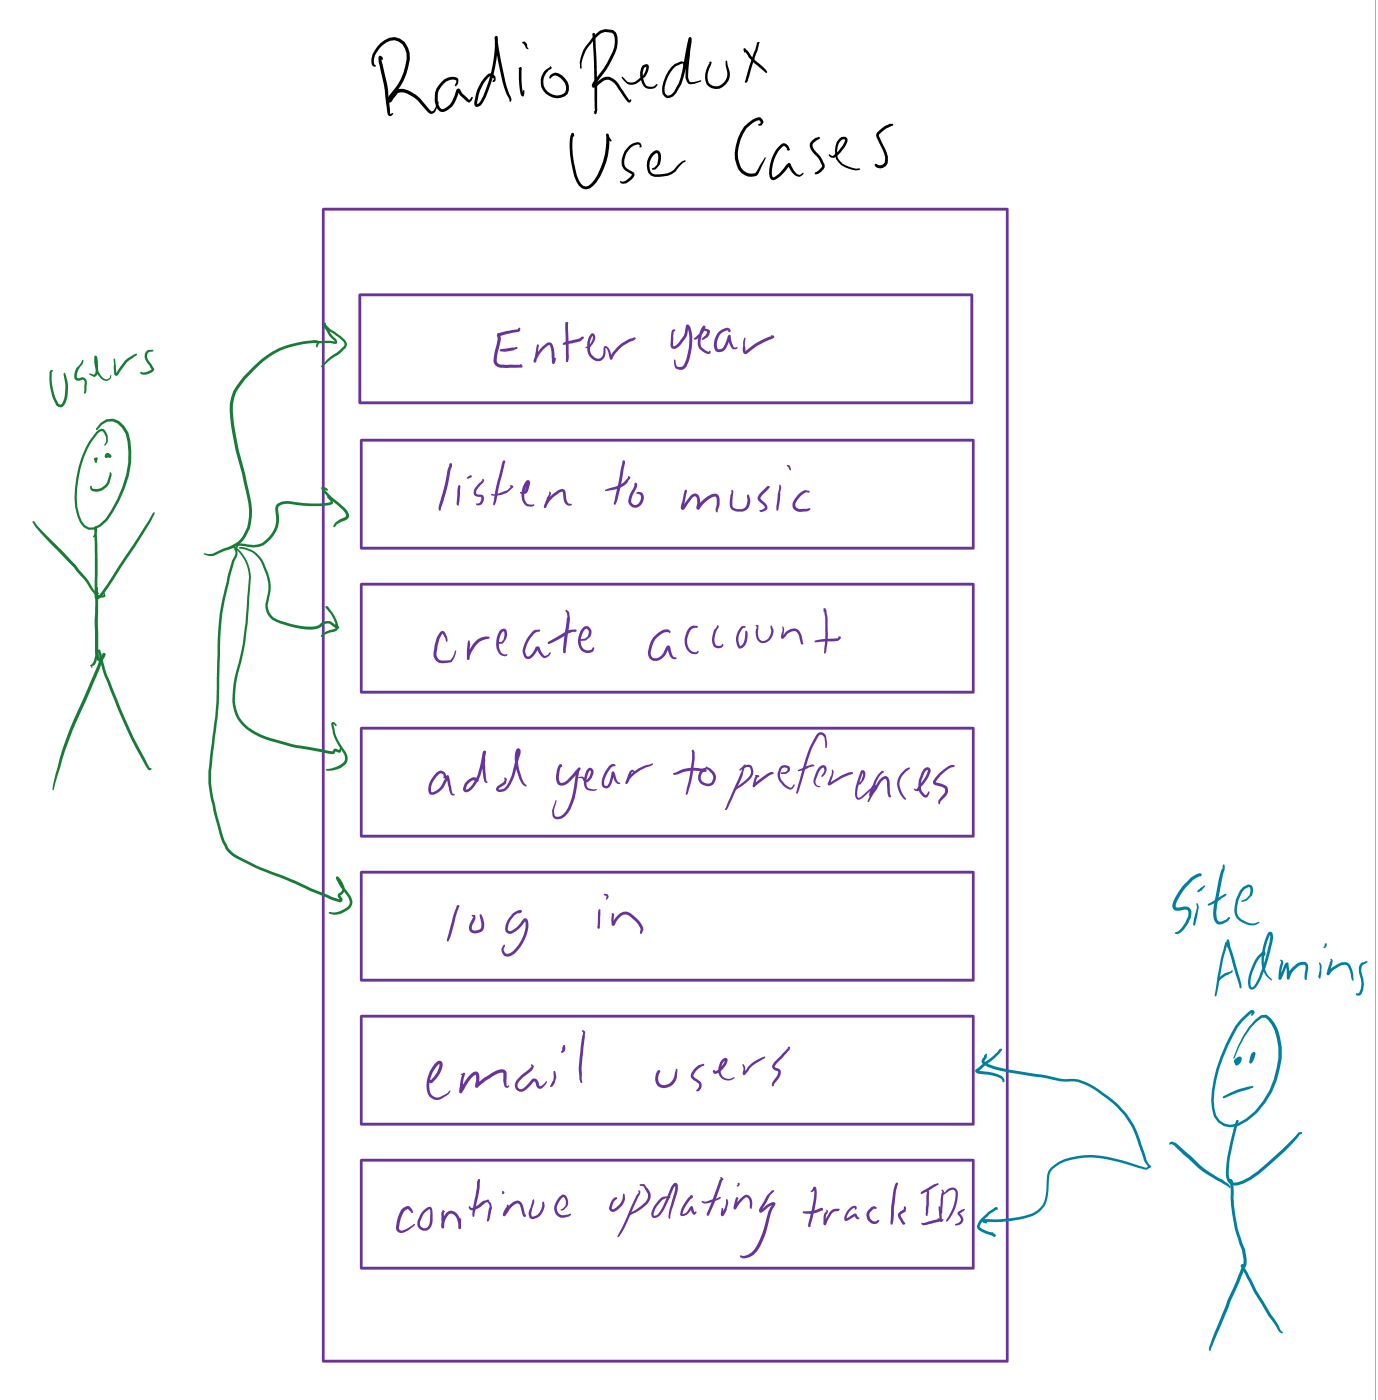 RadioRedux
Use Cases
Users
Enter year
listen to music
create account
add year to preferences
log in
Site
Admins
email users
continue updating track IDs